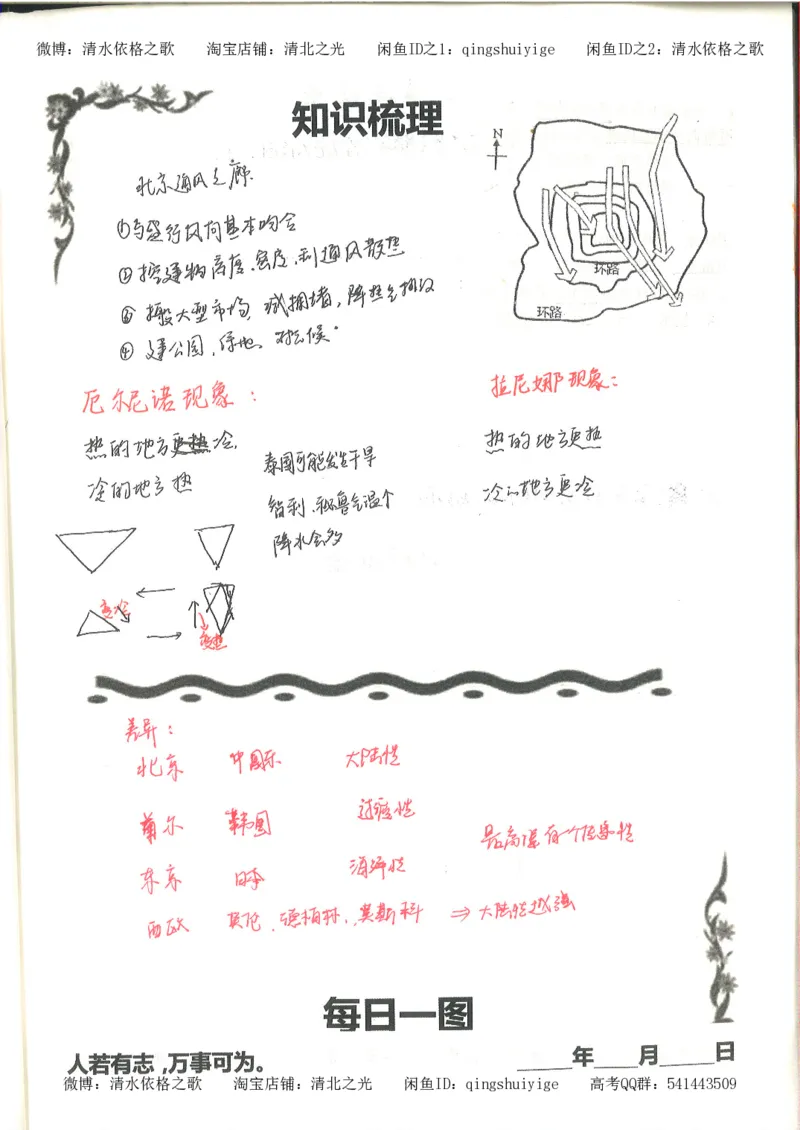 微博：清水依格之歌 淘宝店铺：清北之光 闲鱼ID之1：qingshuiyige 闲鱼ID之2：清水依格之歌
知识梳理
N
北京通风走廊
①与盛行风向基本吻合
②控建物高度、密度，利通风散热
③搬大型市场，减拥堵，降热气排放
④建公园、绿地、
环路
环路
厄尔尼诺现象：
热的地方更冷，
冷的地方热
泰国可能发生干旱
智利、秘鲁气温个
降水会多
拉尼娜现象：
热的地方更热
冷的地方更冷
变冷
变热
差异：
北京 中国东 大陆性
首尔 韩国 过渡性
东京 日本 海洋性
最高温有个
西欧 莫伦、德柏林、莫斯科 ⇒ 大陆性越强
每日一图
人若有志,万事可为。
年 月 日
微博：清水依格之歌 淘宝店铺：清北之光 闲鱼ID：qingshuiyige 高考QQ群：541443509